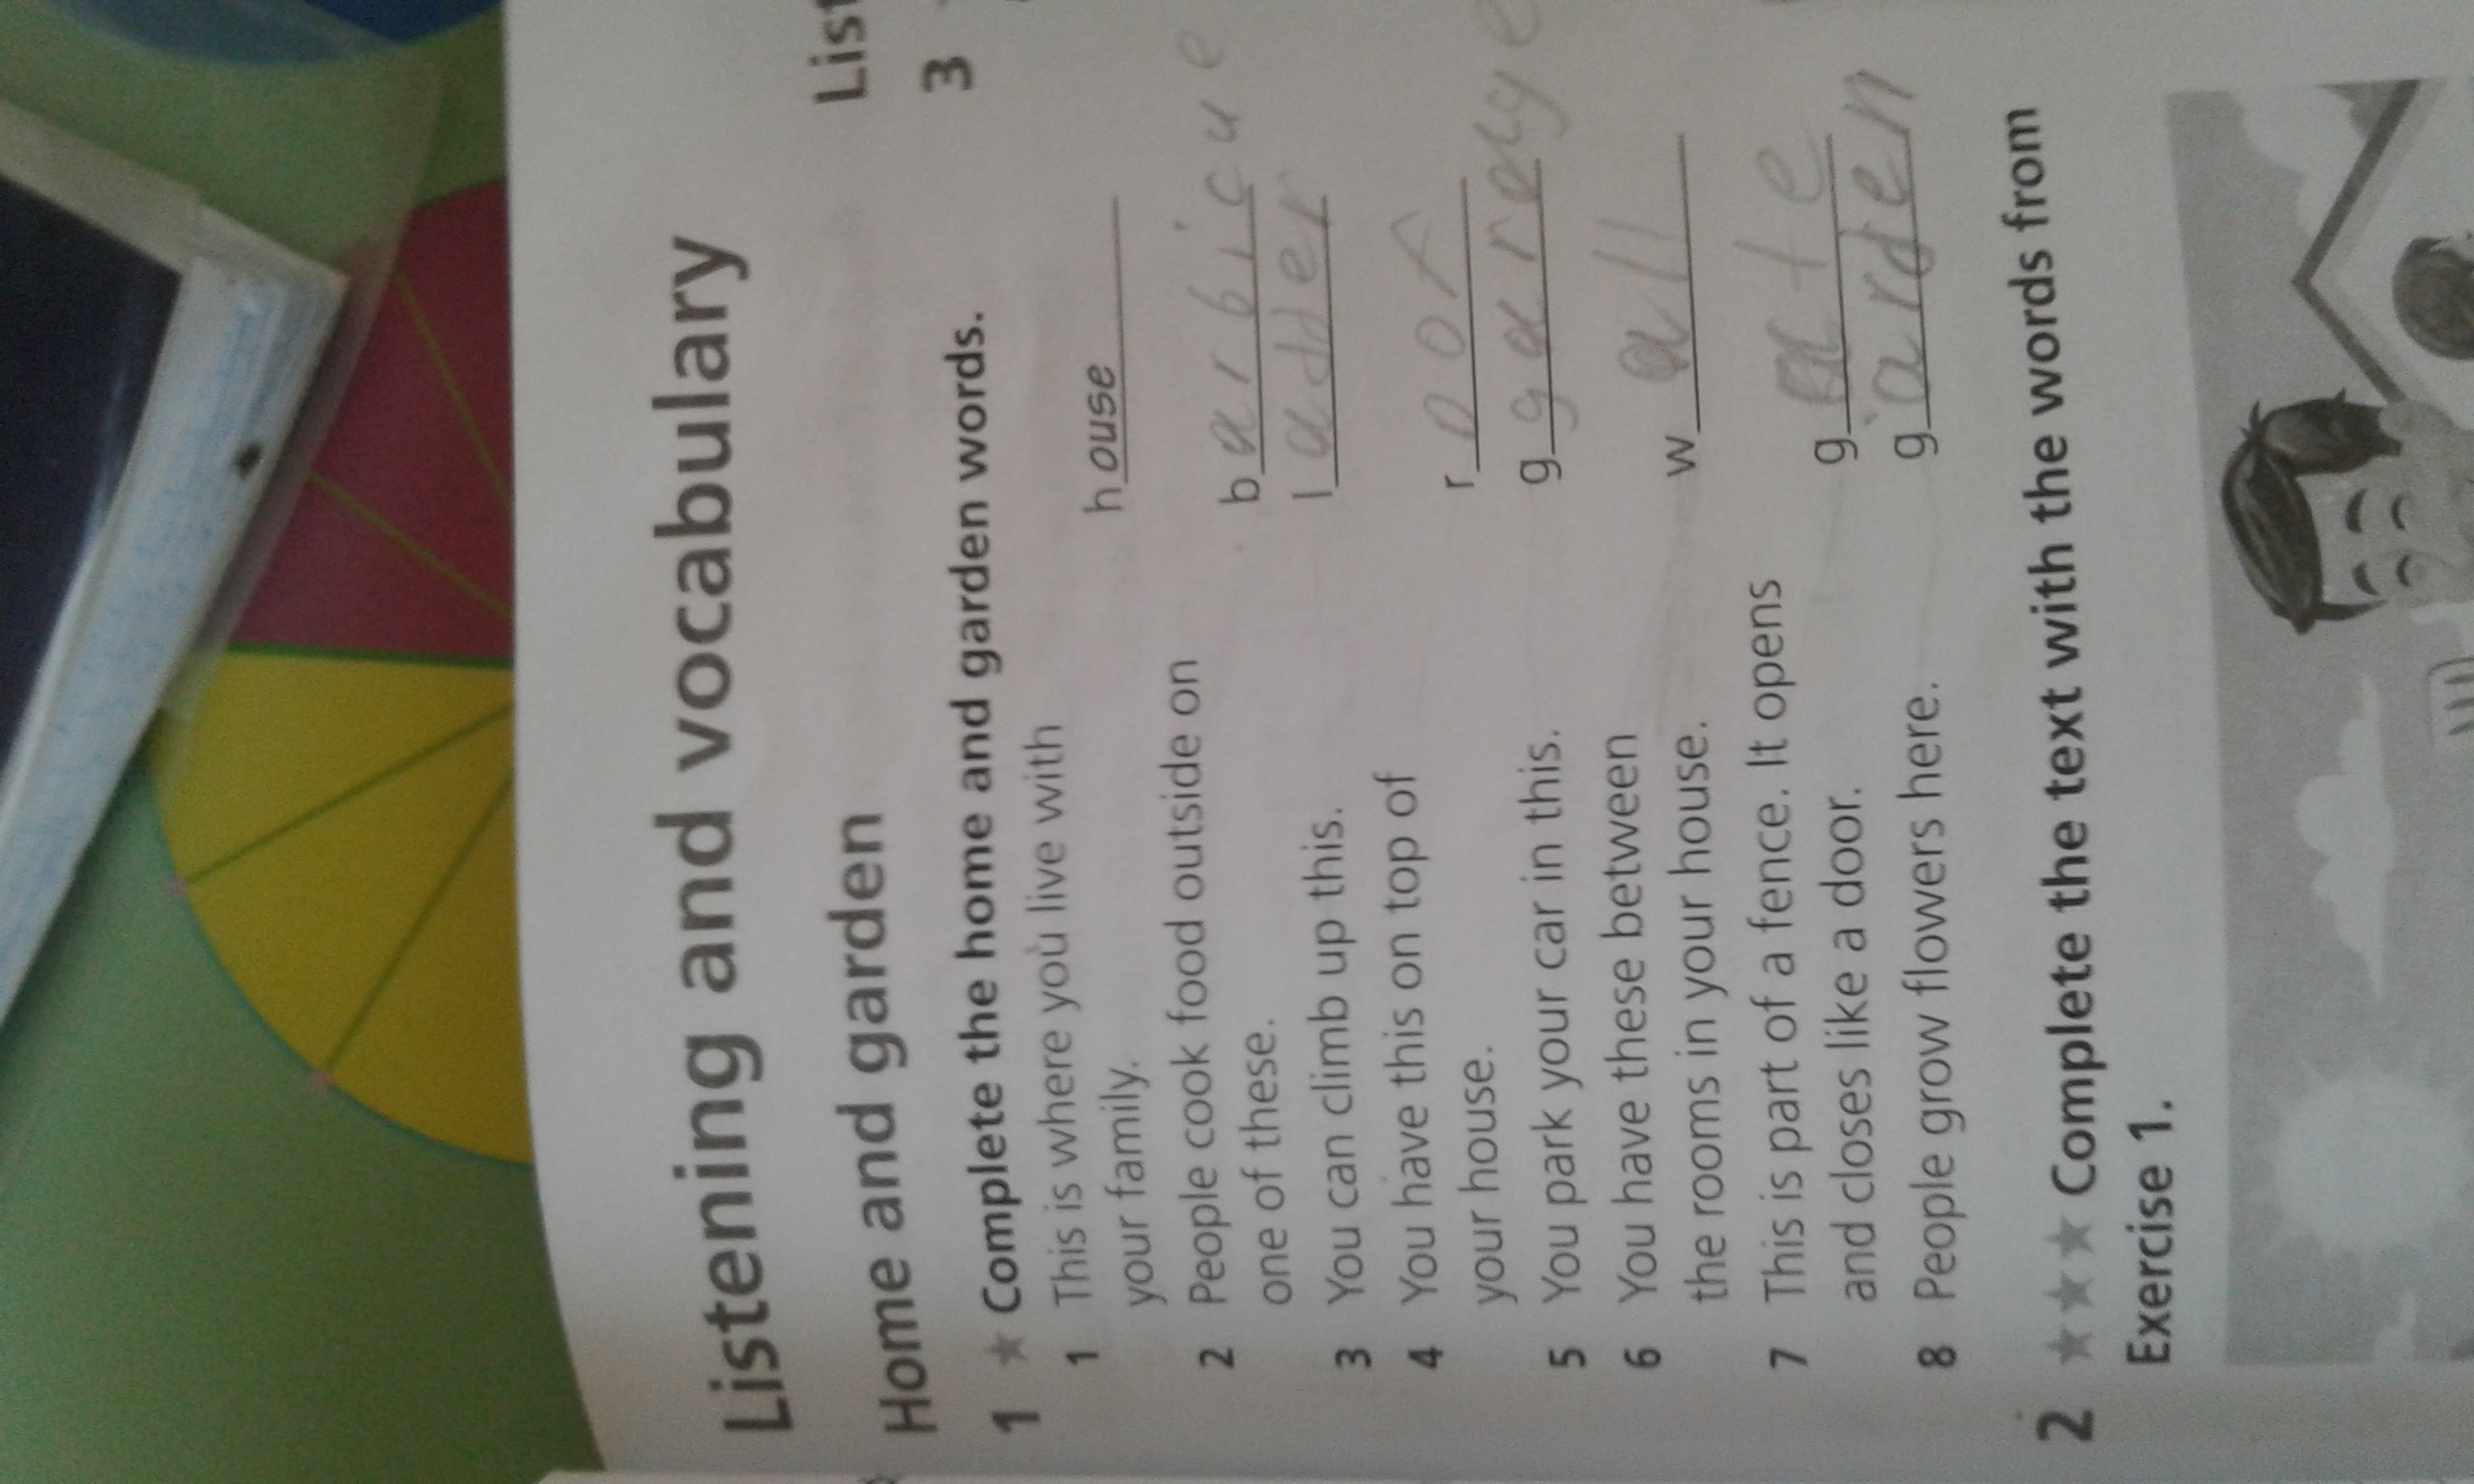 Listening and vocabulary
Home and garden
1 ★ Complete the home and garden words.
1 This is where you live with
your family. house
2 People cook food outside on
one of these. barbicue
3 You can climb up this. ladder
4 You have this on top of
your house. roof
5 You park your car in this.
6 You have these between
the rooms in your house. wall
7 This is part of a fence. It opens
and closes like a door. gate
8 People grow flowers here. garden
2 ★★★ Complete the text with the words from
Exercise 1.
List
3